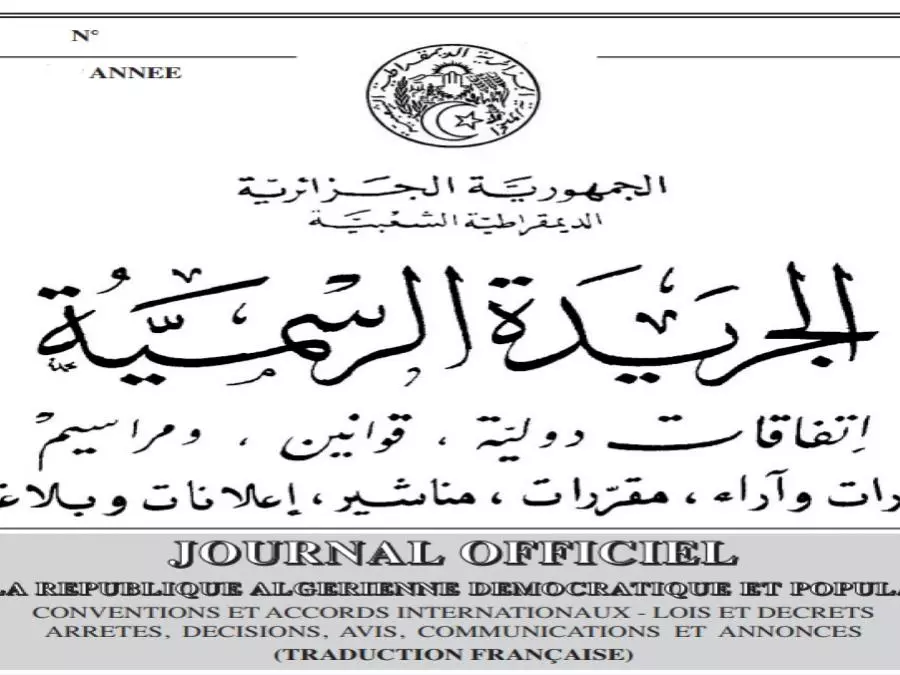 N°
ANNEE
الجمهورية الجزائرية
الديمقراطية الشعبية
الجريدة الرسمية
إتفاقات دولية ، قوانين ، ومراسيم
رات وآراء ، مقررات ، مناشير ، إعلانات وبلاغ
JOURNAL OFFICIEL
LA REPUBLIQUE ALGERIENNE DEMOCRATIQUE ET POPUL
CONVENTIONS ET ACCORDS INTERNATIONAUX - LOIS ET DECRETS
ARRETES, DECISIONS, AVIS, COMMUNICATIONS ET ANNONCES
(TRADUCTION FRANÇAISE)